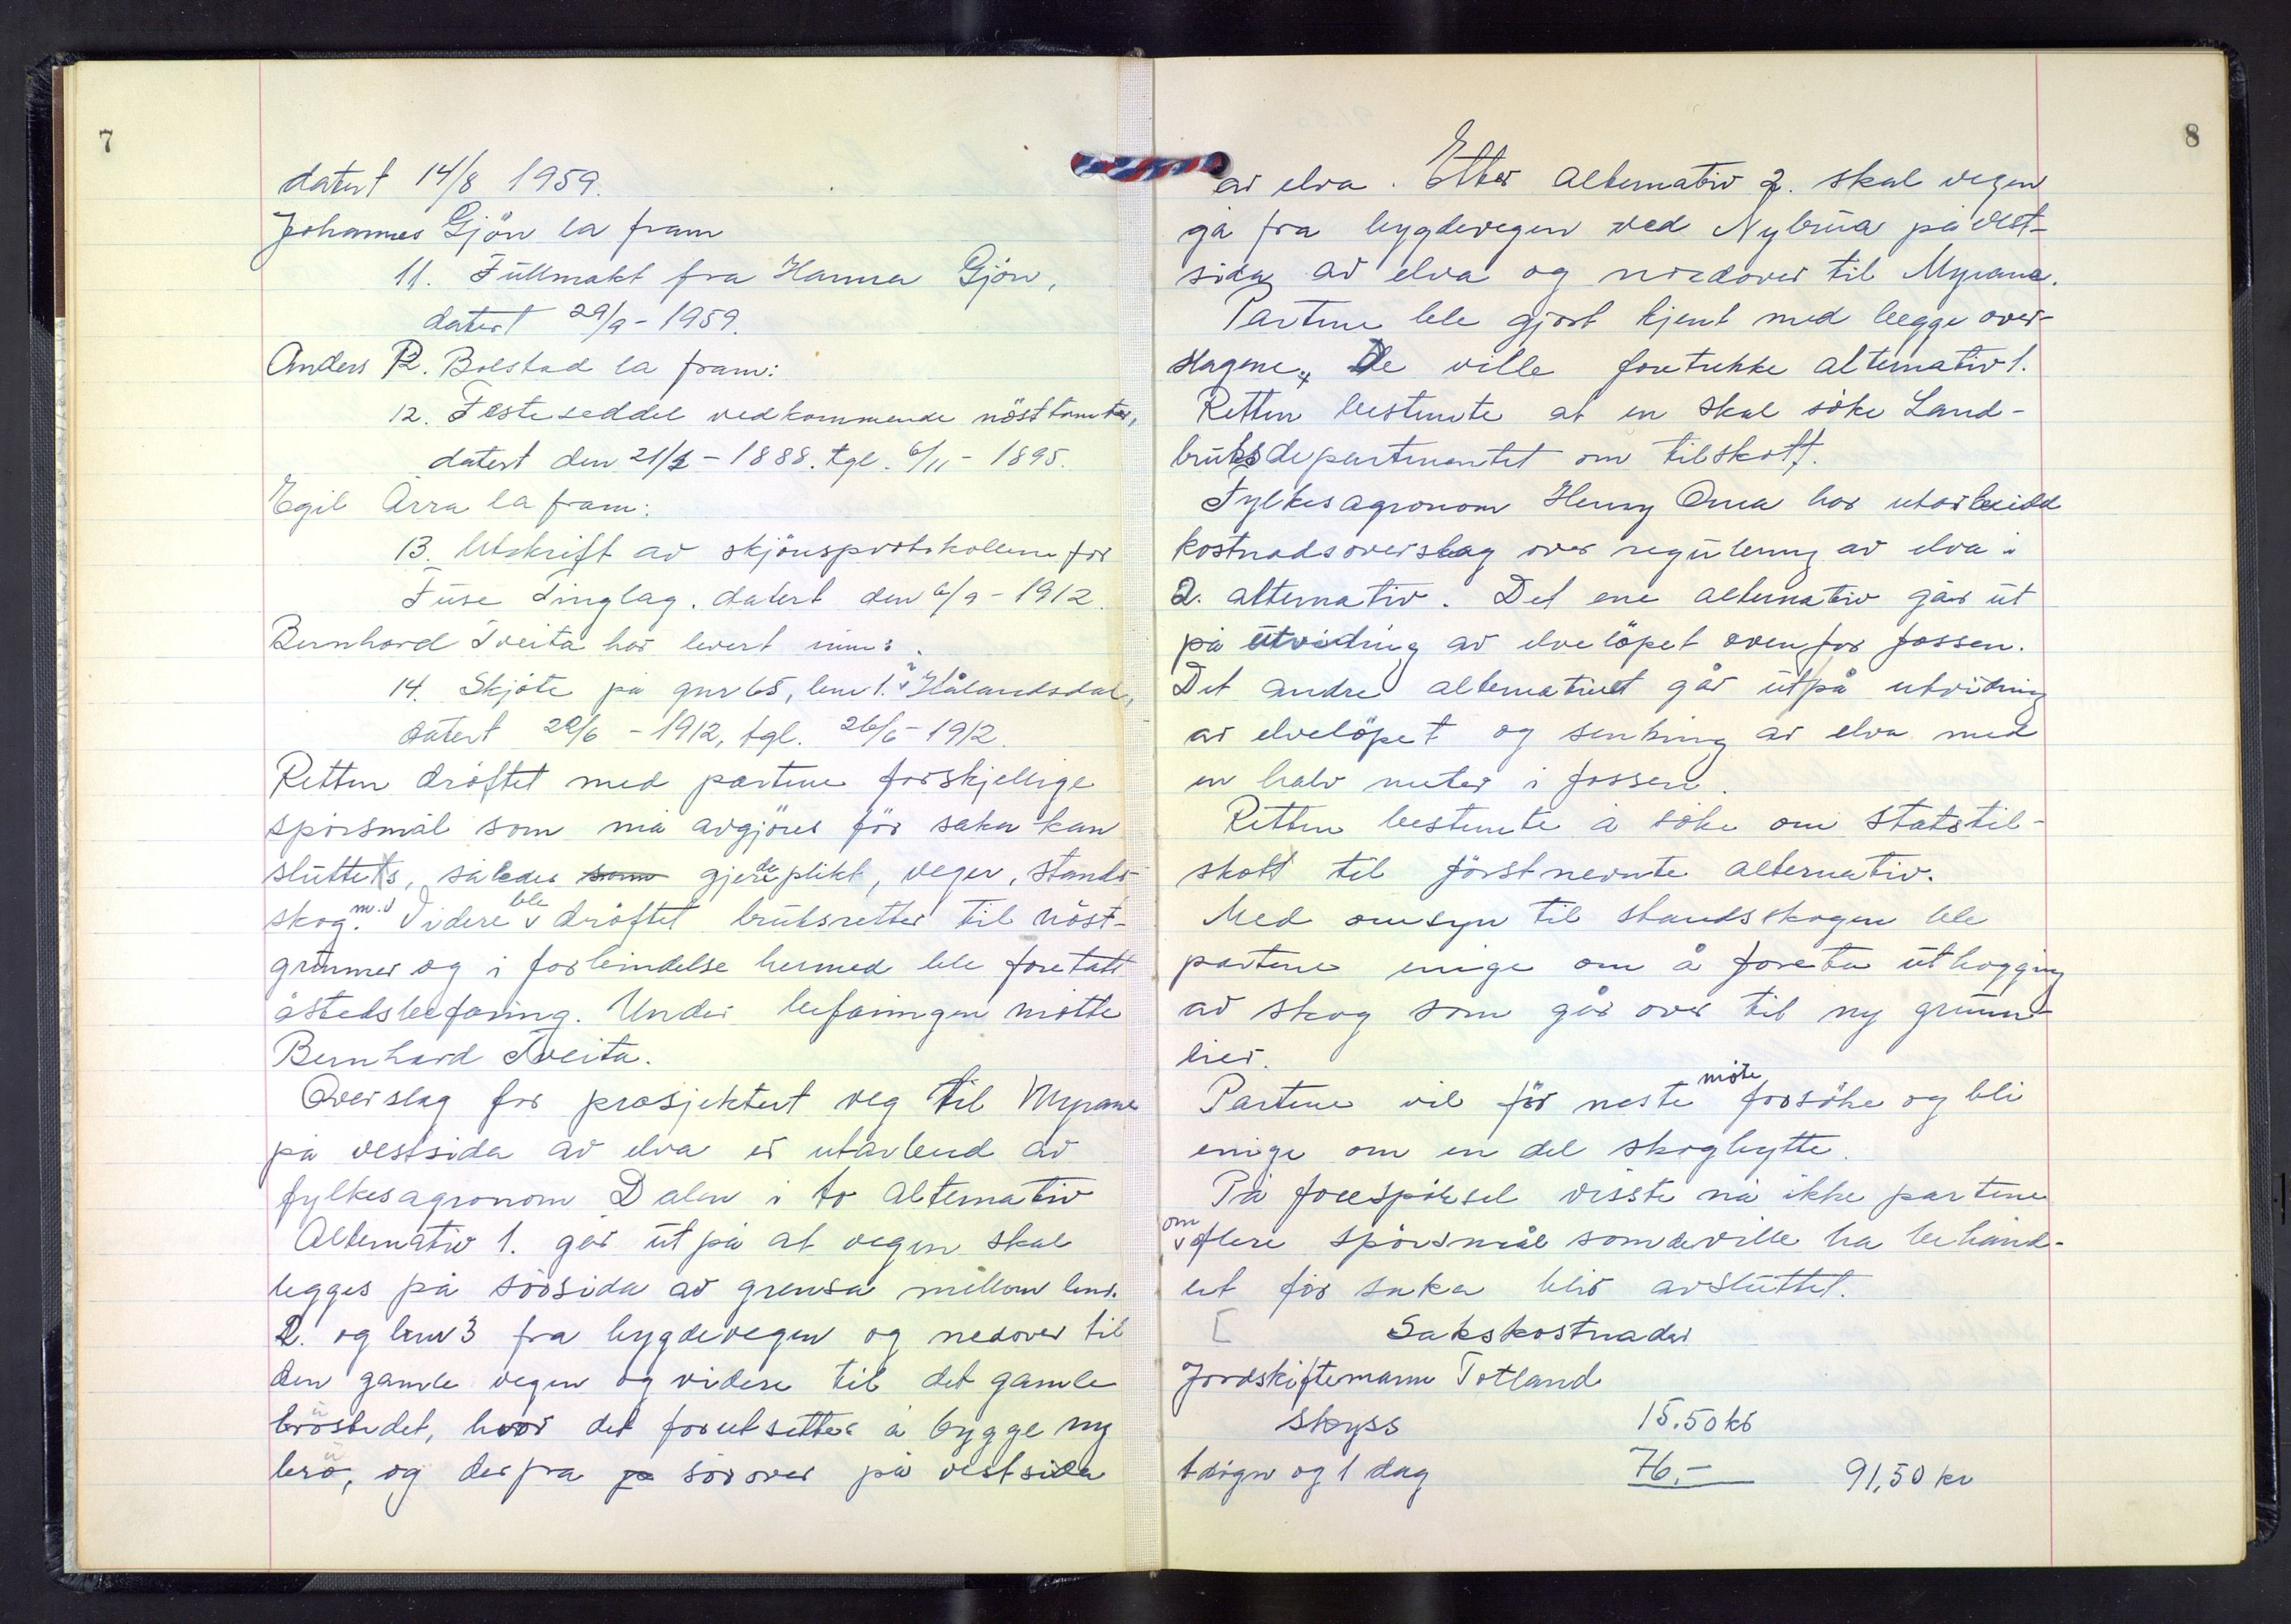 7
datert 14/8 1959.
Johannes Gjön la fram
11. Fullmakt fra Hanna Gjön,
datert 29/9 - 1959.
Anders R. Bolstad la fram:
12. Festeseddel vedkommende nösttomter,
datert den 21/2 - 1888. tgl. 6/11 - 1895.
Egil Arra la fram:
13. Utskrift av skjönsprotokollene for
Fuse Tinglag. datert den 6/9 - 1912.
Bernhard Tveita har levert inn:
14. Skjöte på gnr 65, bnr 1. i Hålandsdal,
datert 20/6 - 1912, tgl. 26/6 - 1912.
Retten dröftet med partene forskjellige
spörsmål som må avgjöres för saka kan
sluttets, således som gjerdeplikt, veger, stands-
skog m.v. Videre ble dröftet bruksretter til nöst-
grunner og i forbindelse hermed ble foretatt
åstedsbefaring. Under befaringen mötte
Bernhard Tveita.
Overslag for prosjektert veg til Myrane
på vestsida av elva er utarbeid av
fylkesagronom Dalen i to alternativ
Alternativ 1. går ut på at vegen skal
legges på sörsida av grensa mellom bnr.
2. og bnr 3 fra bygdevegen og nedover til
den gamle vegen og videre til det gamle
brustedet, hvor det forutsettes å bygge ny
bru, og derfra på sörover på vestsida
8
av elva. Etter alternativ 2. skal vegen
gå fra bygdevegen ved Nybrua på vest-
sida av elva og nordover til Myrane.
Partene ble gjort kjent med begge over-
slagene. De ville foretrekke alternativ 1.
Retten bestemte at en skal söke Land-
bruksdepartmentet om tilskott.
Fylkesagronom Henry Oma har utarbeidd
kostnadsoverslag over regulering av elva i
2. alternativ. Det ene alternativ går ut
på utviding av elvelöpet ovenfor fossen.
Det andre alternativet går ut på utviding
av elvelöpet og senking av elva med
en halv meter i fossen.
Retten bestemte å söke om statstil-
skott til förstnevnte alternativ.
Med omsyn til standsskogen ble
partene enige om å foreta uthogging
av skog som går over til ny grunn-
eier.
Partene vil för neste möte forsöke og bli
enige om en del skogbytte.
På forespörsel visste nå ikke partene
om flere spörsmål som de ville ha behand-
let för saka blir avsluttet.
[ Sakskostnader
Jordskiftemann Totland
skyss 15.50 kr
1 dögn og 1 dag 76.- 91,50 kr